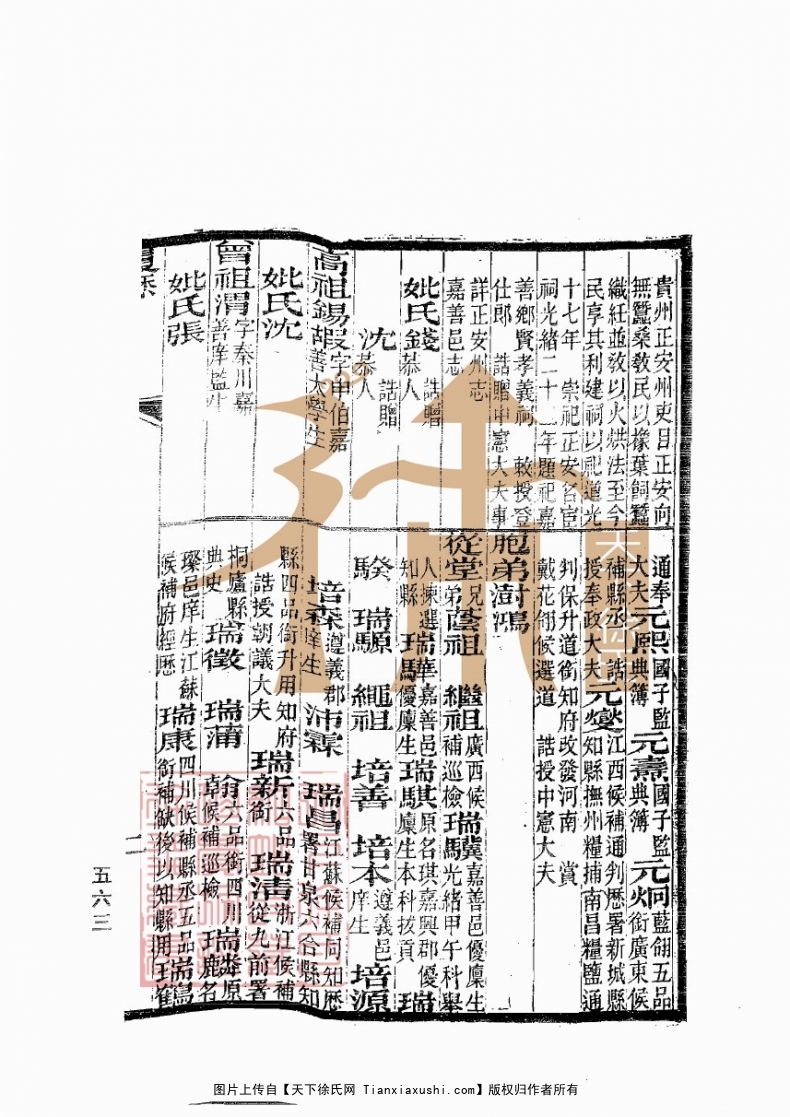 貴州正安州吏目正安向
無蠶桑敎民以橡葉飼蠶
織紝並敎以火烘法至今
民享其利建祠以祀道光
十七年 崇祀正安名宦
祠光緒二十二年題祀嘉
善鄉賢孝義祠 敕授登
仕郎 誥贈中憲大夫事
詳正安州志
嘉善邑志
妣氏錢 誥贈恭人
沈 誥贈恭人
高祖錫嘏 字申伯嘉善太學生
妣氏沈
曾祖渭 字秦川嘉善庠監生
妣氏張
通奉大夫元熙 國子監典簿 元燾 國子監典簿 元炯 藍翎五品銜廣東候
補縣丞 誥授奉政大夫 元燮 江西候補通判歷署新城縣知縣撫州糧捕南昌糧鹽通
判保升道銜知府改發河南 賞
戴花翎候選道 誥授中憲大夫
胞弟澍鴻
從堂兄弟蔭祖 繼祖 廣西候補巡檢 瑞驥 嘉善邑優廩生光緒甲午科舉
人揀選知縣 嘉善邑優廩生 瑞騏 原名琪嘉興郡優廩生本科拔貢 瑞
騤 瑞騵 繩祖 培善 培本 遵義邑庠生 培源
培森 遵義郡庠生 沛霖 瑞昌 江蘇候補同知歷署甘泉六合縣知
縣四品銜升用知府 誥授朝議大夫 瑞新 六品銜 瑞清 浙江候補從九前署
桐廬縣典史 瑞徵 瑞蒲 翰 六品銜四川候補巡檢 瑞麟 原名
璨邑庠生江蘇候補府經歷 瑞康 四川候補縣丞五品銜補缺後以知縣用 瑞鶴
二
五六三
图片上传自【天下徐氏网 Tianxiaxushi.com】版权归作者所有